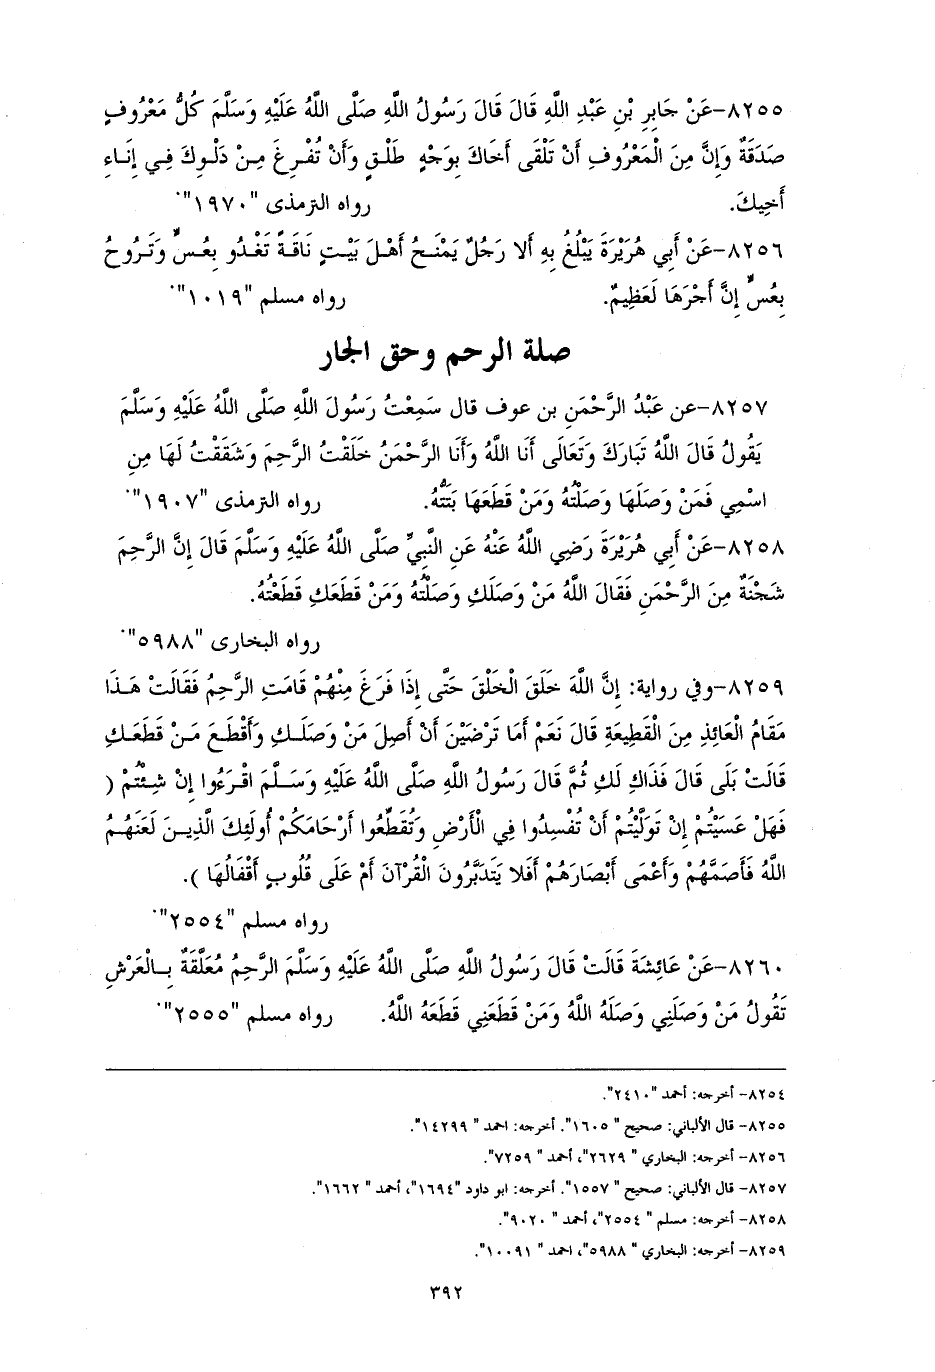 ٨٢٥٥-عَنْ جَابِرِ بْنِ عَبْدِ اللَّهِ قَالَ قَالَ رَسُولُ اللَّهِ صَلَّى اللَّهُ عَلَيْهِ وَسَلَّمَ كُلُّ مَعْرُوفٍ
صَدَقَةٌ وَإِنَّ مِنَ الْمَعْرُوفِ أَنْ تَلْقَى أَخَاكَ بِوَجْهٍ طَلْقٍ وَأَنْ تُفْرِغَ مِنْ دَلْوِكَ فِي إِنَاءِ
أَخِيكَ. رواه الترمذى "١٩٧٠".
٨٢٥٦-عَنْ أَبِي هُرَيْرَةَ يَبْلُغُ بِهِ أَلا رَجُلٌ يَمْنَحُ أَهْلَ بَيْتٍ نَاقَةً تَغْدُو بِعُسٍّ وَتَرُوحُ
بِعُسٍّ إِنَّ أَجْرَهَا لَعَظِيمٌ. رواه مسلم "١٠١٩".
صلة الرحم وحق الجار
٨٢٥٧-عن عَبْدُ الرَّحْمَنِ بن عوف قال سَمِعْتُ رَسُولَ اللَّهِ صَلَّى اللَّهُ عَلَيْهِ وَسَلَّمَ
يَقُولُ قَالَ اللَّهُ تَبَارَكَ وَتَعَالَى أَنَا اللَّهُ وَأَنَا الرَّحْمَنُ خَلَقْتُ الرَّحِمَ وَشَقَقْتُ لَهَا مِنِ
اسْمِي فَمَنْ وَصَلَهَا وَصَلْتُهُ وَمَنْ قَطَعَهَا بَتَتُّهُ. رواه الترمذى "١٩٠٧".
٨٢٥٨-عَنْ أَبِي هُرَيْرَةَ رَضِي اللَّهُ عَنْهُ عَنِ النَّبِيِّ صَلَّى اللَّهُ عَلَيْهِ وَسَلَّمَ قَالَ إِنَّ الرَّحِمَ
شَجْنَةٌ مِنَ الرَّحْمَنِ فَقَالَ اللَّهُ مَنْ وَصَلَكِ وَصَلْتُهُ وَمَنْ قَطَعَكِ قَطَعْتُهُ.
رواه البخارى "٥٩٨٨".
٨٢٥٩-وفي رواية: إِنَّ اللَّهَ خَلَقَ الْخَلْقَ حَتَّى إِذَا فَرَغَ مِنْهُمْ قَامَتِ الرَّحِمُ فَقَالَتْ هَذَا
مَقَامُ الْعَائِذِ مِنَ الْقَطِيعَةِ قَالَ نَعَمْ أَمَا تَرْضَيْنَ أَنْ أَصِلَ مَنْ وَصَلَكِ وَأَقْطَعَ مَنْ قَطَعَكِ
قَالَتْ بَلَى قَالَ فَذَاكِ لَكِ ثُمَّ قَالَ رَسُولُ اللَّهِ صَلَّى اللَّهُ عَلَيْهِ وَسَلَّمَ اقْرَءُوا إِنْ شِئْتُمْ (
فَهَلْ عَسَيْتُمْ إِنْ تَوَلَّيْتُمْ أَنْ تُفْسِدُوا فِي الْأَرْضِ وَتُقَطِّعُوا أَرْحَامَكُمْ أُولَئِكَ الَّذِينَ لَعَنَهُمُ
اللَّهُ فَأَصَمَّهُمْ وَأَعْمَى أَبْصَارَهُمْ أَفَلا يَتَدَبَّرُونَ الْقُرْآنَ أَمْ عَلَى قُلُوبٍ أَقْفَالُهَا ).
رواه مسلم "٢٥٥٤".
٨٢٦٠-عَنْ عَائِشَةَ قَالَتْ قَالَ رَسُولُ اللَّهِ صَلَّى اللَّهُ عَلَيْهِ وَسَلَّمَ الرَّحِمُ مُعَلَّقَةٌ بِالْعَرْشِ
تَقُولُ مَنْ وَصَلَنِي وَصَلَهُ اللَّهُ وَمَنْ قَطَعَنِي قَطَعَهُ اللَّهُ. رواه مسلم "٢٥٥٥".
٨٢٥٤- أخرجه: أحمد "٢٤١٠".
٨٢٥٥- قال الألباني: صحيح " ١٦٠٥". أخرجه: احمد " ١٤٢٩٩".
٨٢٥٦- أخرجه: البخاري " ٢٦٢٩"، أحمد " ٧٢٥٩".
٨٢٥٧- قال الألباني: صحيح " ١٥٥٧". أخرجه: ابو داود "١٦٩٤"، أحمد " ١٦٦٢".
٨٢٥٨- أخرجه: مسلم " ٢٥٥٤"، أحمد " ٩٠٢٠".
٨٢٥٩- أخرجه: البخاري " ٥٩٨٨"، احمد " ١٠٠٩١".
٣٩٢